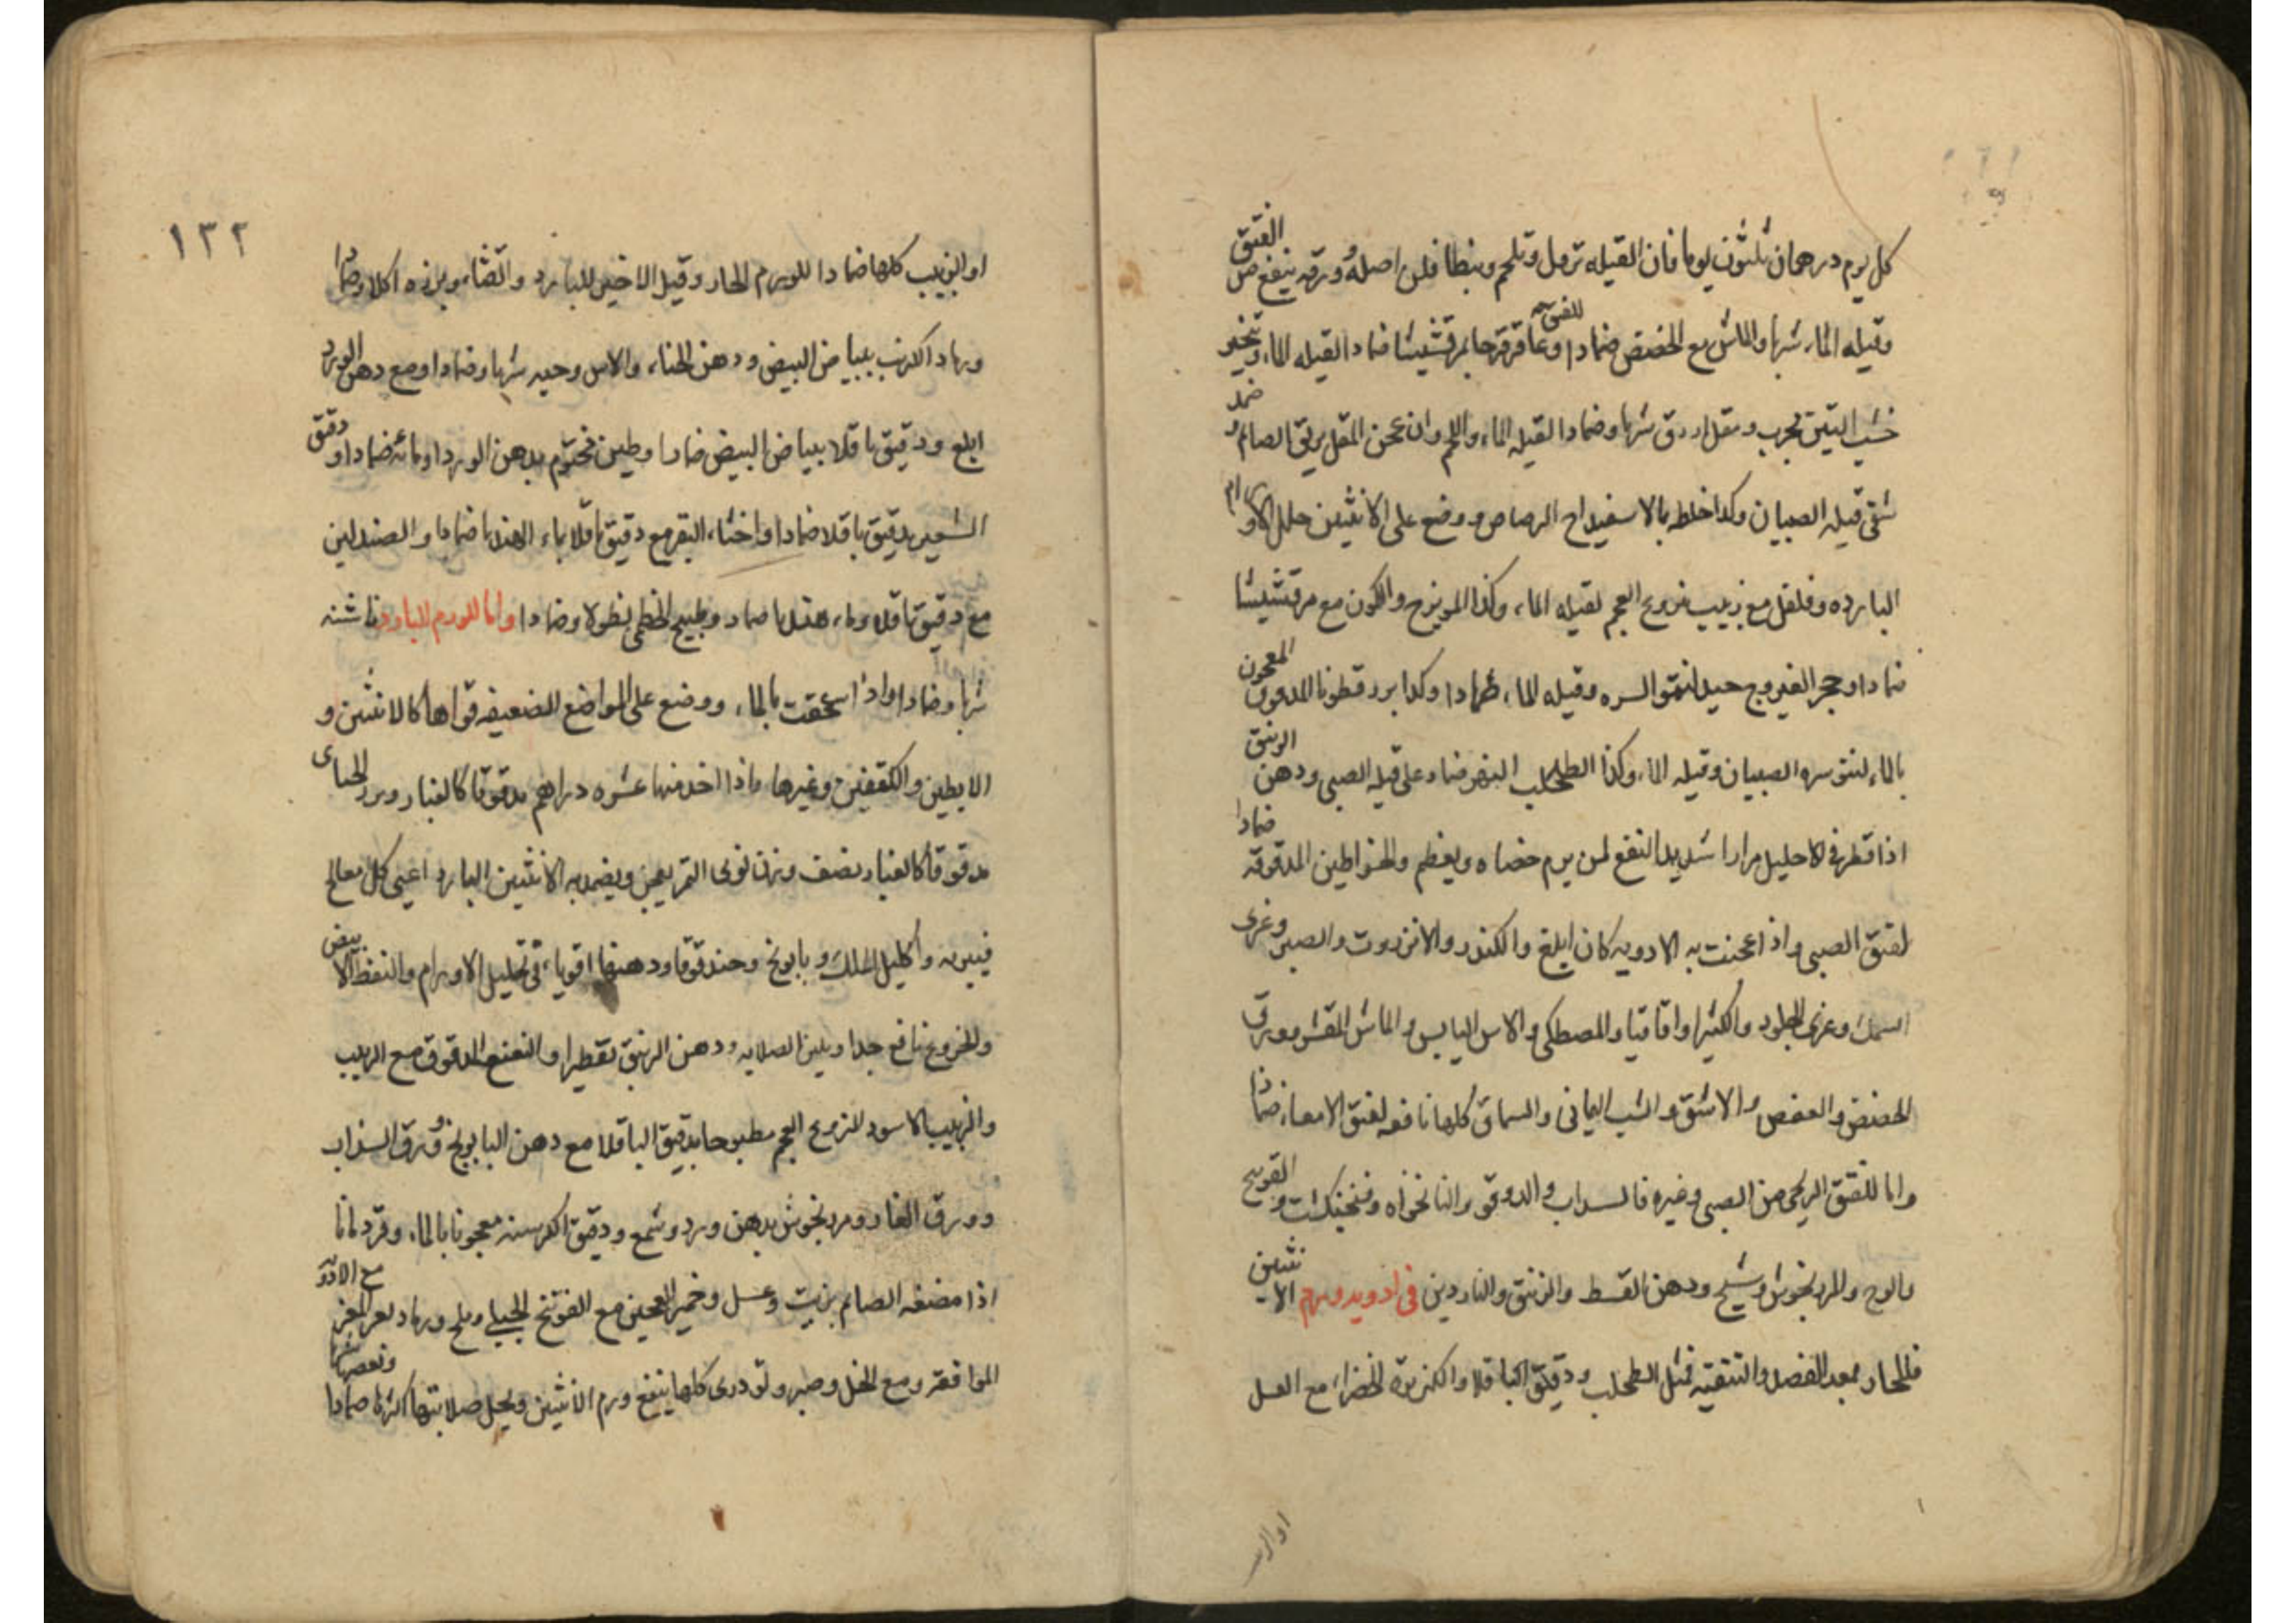 كل يوم درهمان ثلثون يوما فان القيله تزمل وتلحم وبنطافلن اصله وورقه ينفع من الفتق
وقيله الماء شربا والماش مع الحضض ضمادا للفتق وعاقرقرحا بمرقشيشا ضمادا لقيله الماء وبخير
خشب التين مجرب ومقل ازرق شربا وضمادا لقيله الماء واللحم وان عجن المقل بريق الصائم وضمد
شفى قيله الصبيان وكذا خلطه بالاسفيداج الرصاص ووضع على الانثيين حلل الاورام
البارده وفلفل مع زبيب منزوع العجم لقيله الماء وكذا المويزج والكمون مع مرقشيشا
ضمادا وحجر الفيروج جيد لنتو السره وقيله الماء ضمادا وكذا بزرقطونا المدقوق المعجون
بالماء لنتو سره الصبيان وقيله الماء وكذا الطحلب النهر ضماد على قيله الصبى ودهن الزنبق
اذا قطر فى الاحليل مرارا شديد النفع لمن يرم خصاه ويعظم والخراطين المدقوقه ضمادا
لفتق الصبى واذا عجنت به الادويه كان ابلغ والكندر والانزروت والصبر وغرى
السمك وغرى الجلود والكثيرا واقاقيا والمصطكى والاس اليابس والماش المقشر وورق
الحضض والعفص والاشق والشب اليمانى والسماق كلها نافعه لفتق الامعاء ضمادا
واما للفتق الريحى من الصبى وغيره فالسداب والدوقو والنانخواه وفنجنكشت والقويح
والوج والمرزنجوش وشيح ودهن القسط والزنبق والناردين فى ادويه ورم الانثيين
فللحار بعد الفصد والتنقيه فمثل الطحلب ودقيق الباقلا والكزبرة الخضراء مع العسل
او الزبيب
١٣٢
او الزبيب كلها ضمادا للورم الحار وقيل الاخير للبارد والقثاء وبزره اكلا وضمادا
ورماد الكرنب ببياض البيض ودهن الحناء والاس وحبه شربا وضمادا ومع دهن الورد
ابلغ ودقيق باقلا ببياض البيض ضمادا وطين مختوم بدهن الورد او مائه ضمادا ودقيق
الشعير بدقيق باقلا ضمادا واخثاء البقر مع دقيق باقلا بماء الهندبا ضمادا والصندلين
مع دقيق باقلا وماء هندبا ضماد وطبيخ الخطمى نطولا وضمادا واما للورم البارد فاشنه
شربا وضمادا واذا سحقت بالماء ووضع على المواضع الضعيفه قواها كالانثيين و
الابطين والكتفين وغيرها واذا اخذ منها عشره دراهم مدقوقا كالغبار وبزر الخبازى
مدقوقا كالغبار نصف وزن نوى التمر يعجن ويضمد به الانثيين البارد اعيى كل معالج
فيبريه واكليل الملك وبابونج وحندقوقا ودهنها اقوياء فى تحليل الاورام والنفط الابيض
والخروع نافع جدا ويلين الصلابه ودهن الزنبق تقطيرا والنعنع المدقوق مع الزبيب
والزبيب الاسود المنزوع العجم مطبوخا بدقيق الباقلا مع دهن البابونج وورق السذاب
وورق الغار ومرزنجوش بدهن ورد وشمع ودقيق الكرسنه معجونا بالماء وقردمانا
اذا مضغه الصائم بزيت وعسل وخمير العجين مع الفوتنج الجبلى وملح ورماد بعر المعز مع الادويه
الموافقه ومع الخل وصبر وتودرى كلها ينفع ورم الانثيين ويحل صلابتها اكثرها ضمادا وبعضها شربا